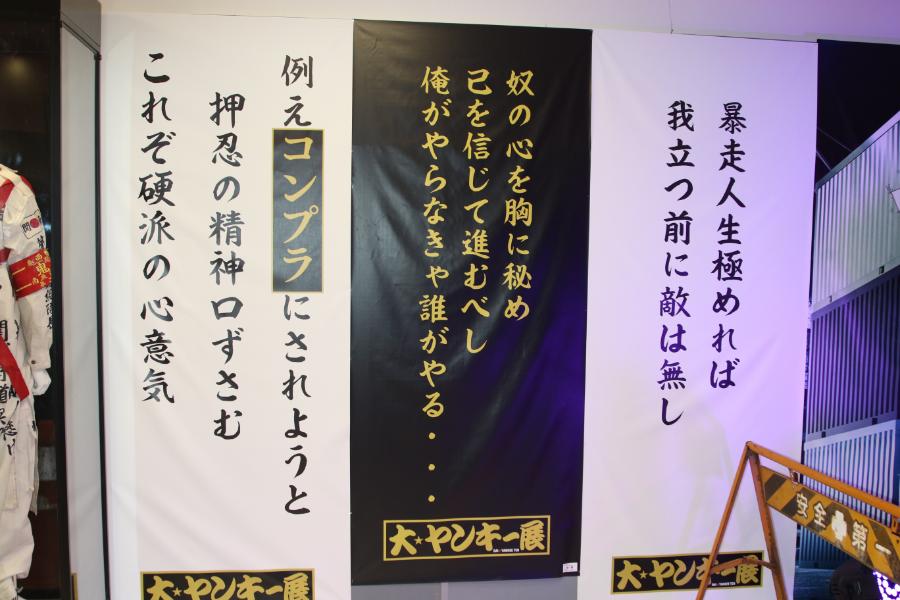 暴走人生極めれば
我立つ前に敵は無し
大★ヤンキー展
奴の心を胸に秘め
己を信じて進むべし
俺がやらなきゃ誰がやる・・・
大★ヤンキー展
例えコンプラにされようと
押忍の精神口ずさむ
これぞ硬派の心意気
大★ヤンキー展
安全✚第一